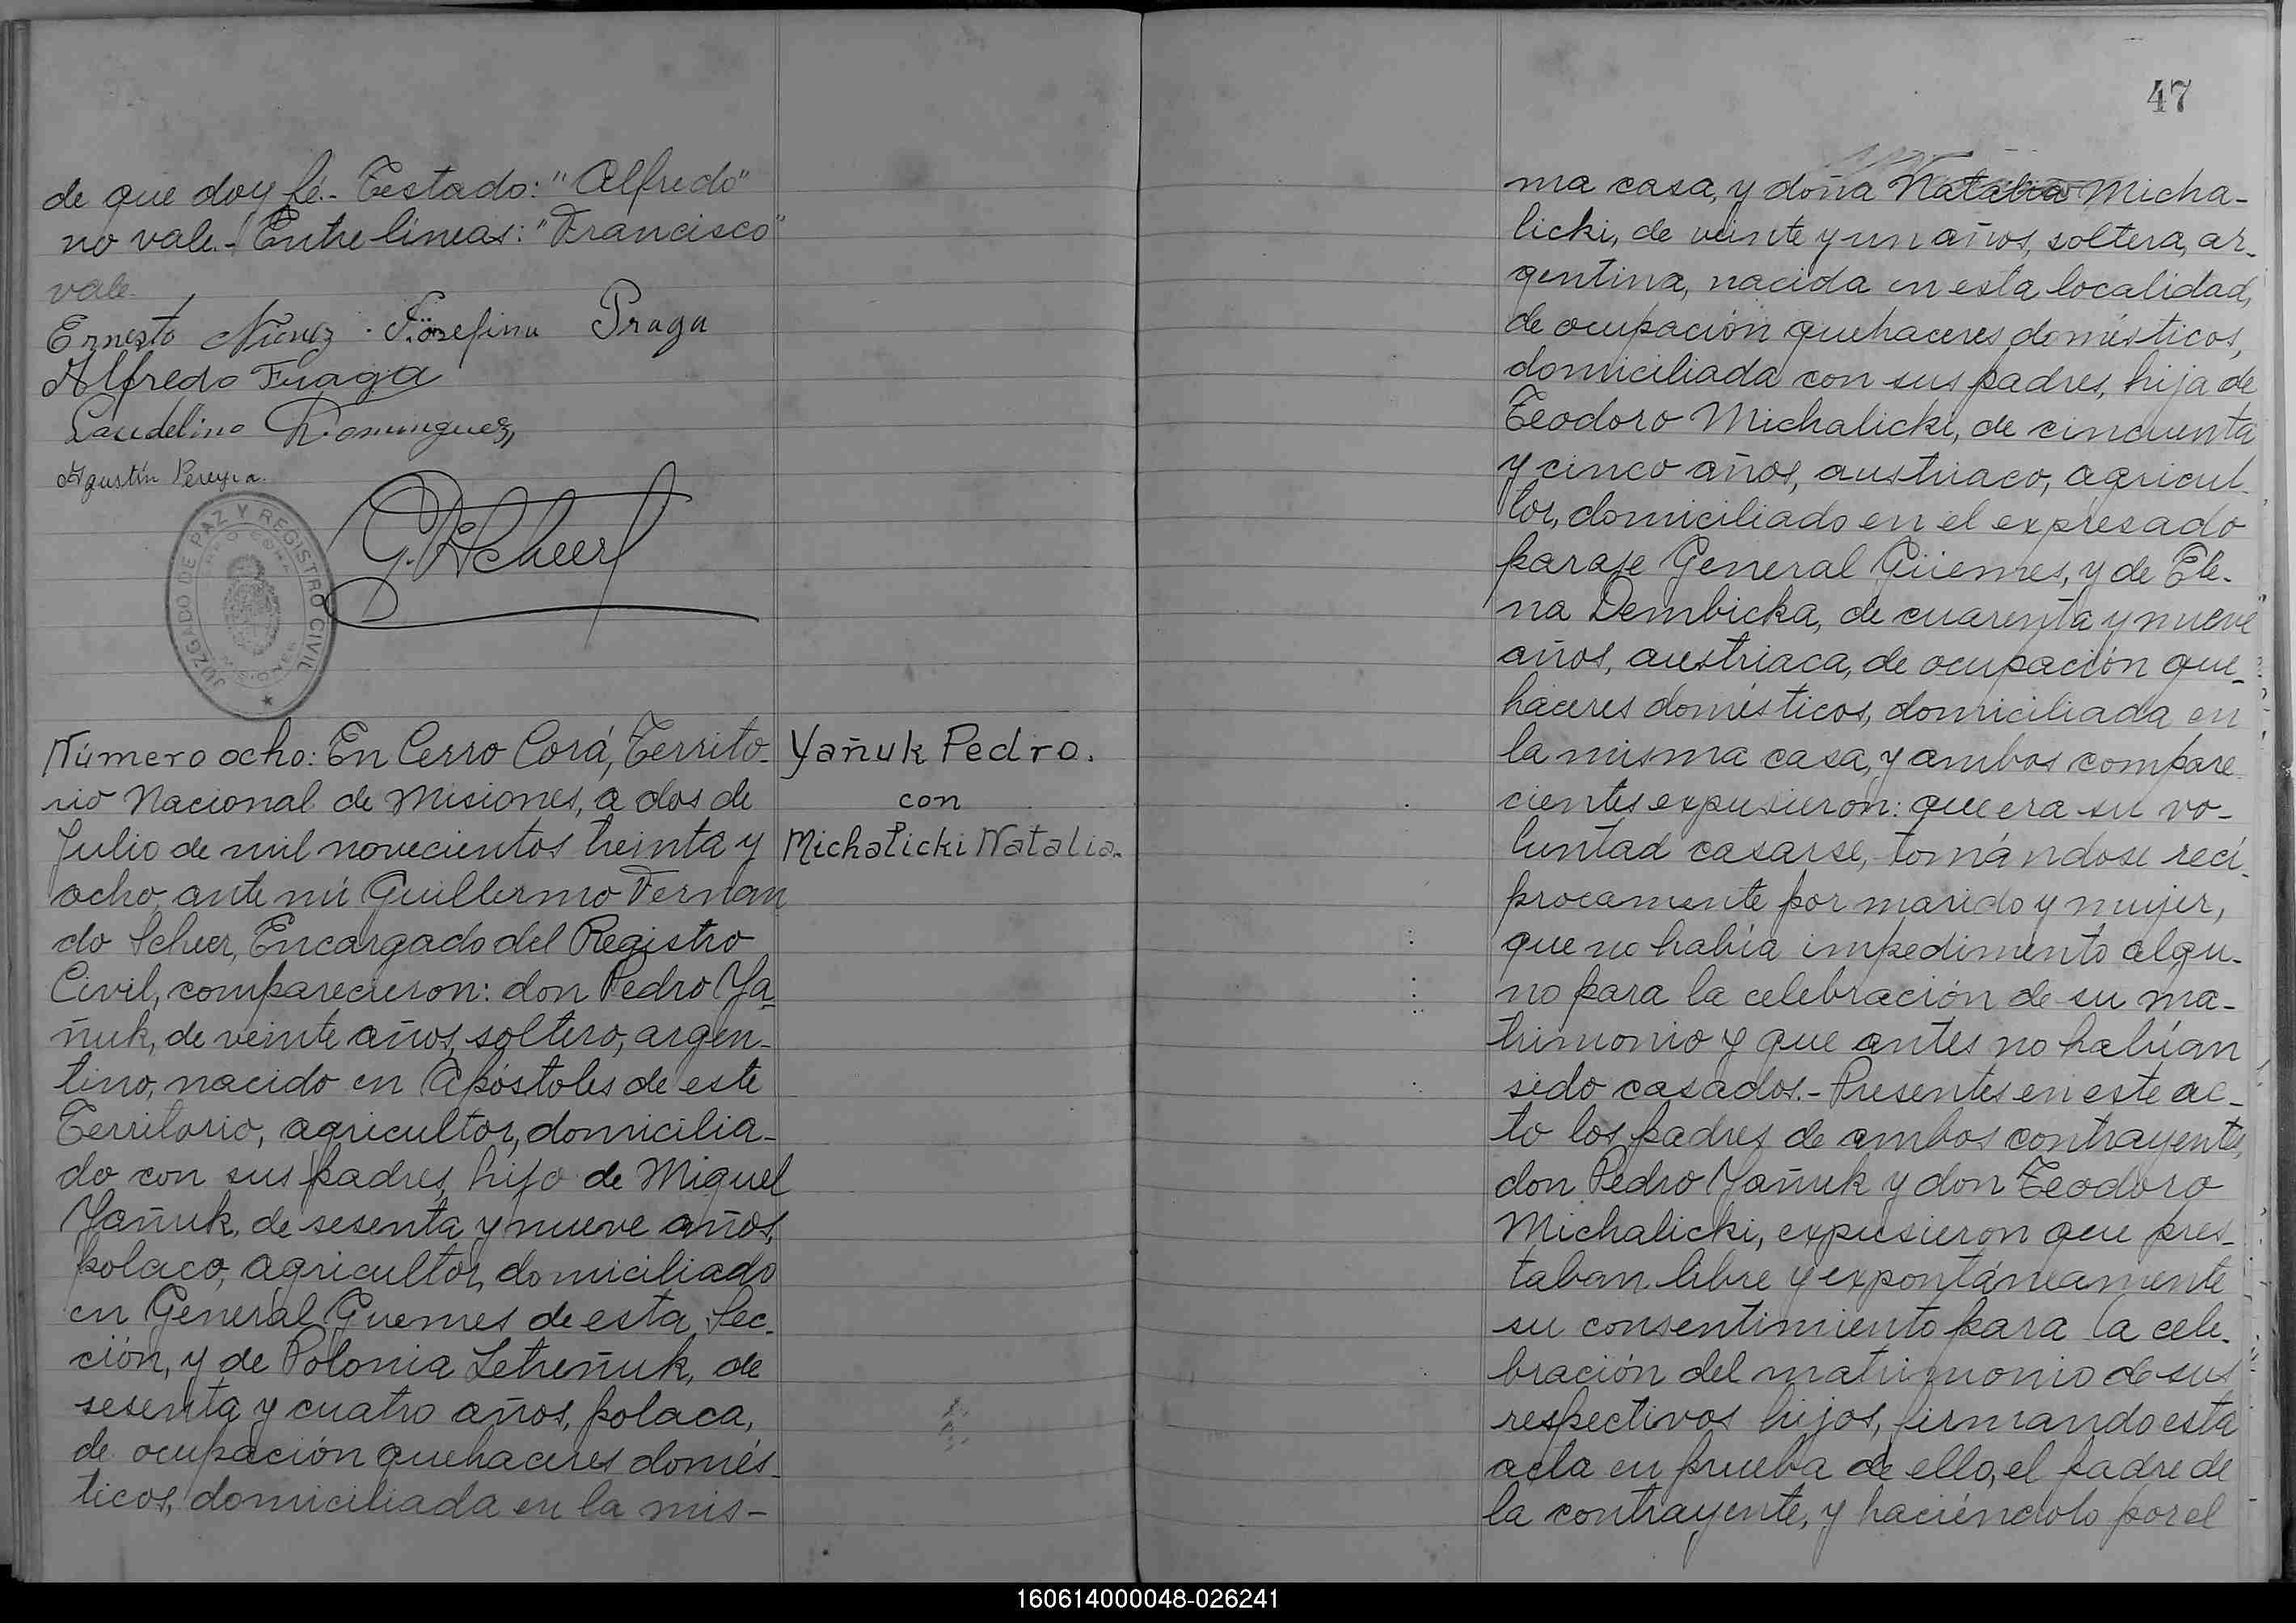 de que doy fé.- Testado: "Alfredo"
no vale.- Entre lineas: "Francisco"
vale.
Ernesto Núnez. Josefina Praga
Alfredo Fraga
Laudelino Dominguez,
Agustín Pereyra.
G. F. Scheer
JUZGADO DE PAZ Y REGISTRO CIVIL
Número ocho: En Cerro Corá, Territo-
rio Nacional de Misiones, a dos de
Julio de mil novecientos treinta y
ocho, ante mí Guillermo Fernan
do Scheer, Encargado del Registro
Civil, comparecieron: don Pedro Ya-
ñuk, de veinte años, soltero, argen-
tino, nacido en Apóstoles de este
Territorio, agricultor, domicilia-
do con sus padres, hijo de Miguel
Yañuk, de sesenta y nueve años,
polaco, agricultor, domiciliado
en General Guemes de esta Sec-
ción, y de Polonia Letreñuk, de
sesenta y cuatro años, polaca,
de ocupación quehaceres domés-
ticos, domiciliada en la mis-
Yañuk Pedro.
con
Michalicki Natalia.
47
ma casa, y doña Natalia Micha-
licki, de veinte y un años, soltera, ar-
gentina, nacida en esta localidad,
de ocupación quehaceres domésticos,
domiciliada con sus padres, hija de
Teodoro Michalicki, de cincuenta
y cinco años, austriaco, agricul-
tor, domiciliado en el expresado
paraje General Güemes, y de Ele-
na Dembicka, de cuarenta y nueve
años, austriaca, de ocupación que-
haceres domésticos, domiciliada en
la misma casa, y ambos compare-
cientes expusieron: que era su vo-
luntad casarse, tomándose recí-
procamente por marido y mujer,
que no había impedimento algu-
no para la celebración de su ma-
trimonio y que antes no habían
sido casados.- Presentes en este ac-
to los padres de ambos contrayentes,
don Pedro Yañuk y don Teodoro
Michalicki, expusieron que pres-
taban libre y expontáneamente
su consentimiento para la cele-
bración del matrimonio de sus
respectivos hijos, firmando esta
acta en prueba de ello, el padre de
la contrayente, y haciéndolo por el
160614000048-026241